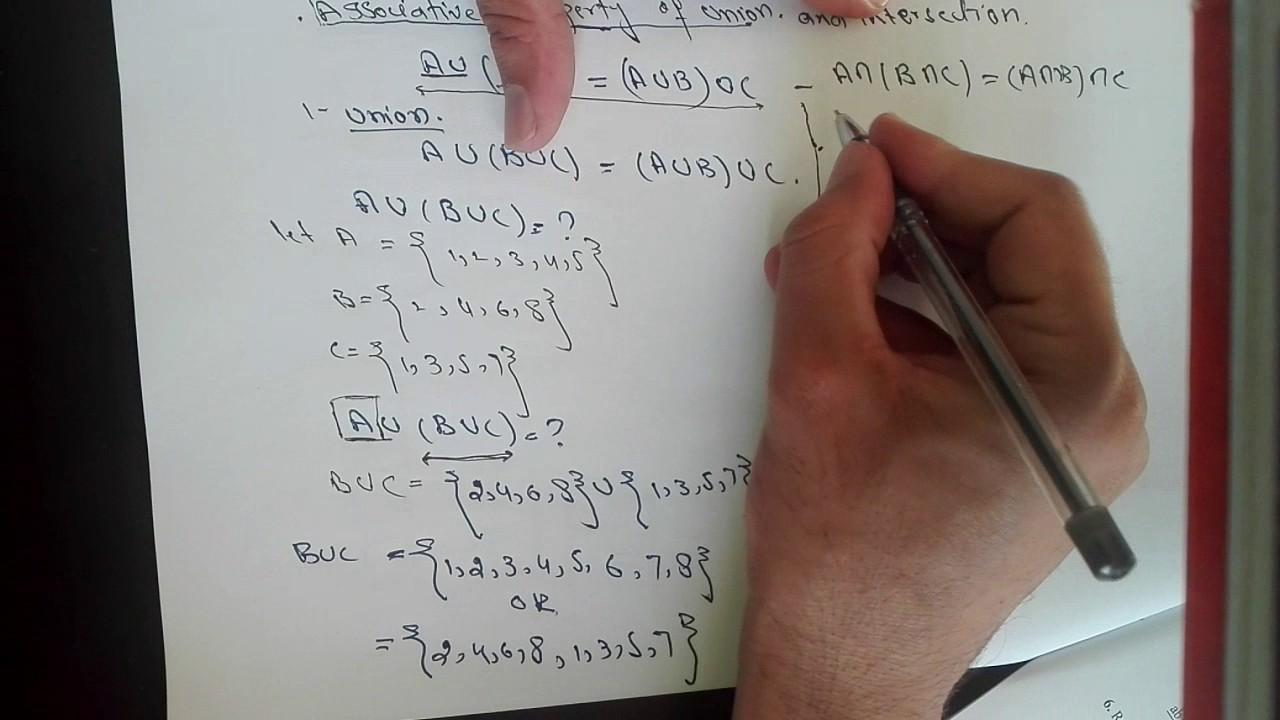 . Associative erty of union. and intersection.
AU ( = (AUB) UC - A∩(B∩C) = (A∩B)∩C
1- union.
A U (BUC) = (AUB) UC.
AU (BUC) = ?
let A = {1, 2, 3, 4, 5}
B = {2, 4, 6, 8}
C = {1, 3, 5, 7}
AU (BUC) = ?
BUC = {2,4,6,8} U {1,3,5,7}
BUC = {1,2,3,4,5,6,7,8}
OR
= {2,4,6,8,1,3,5,7}
6.